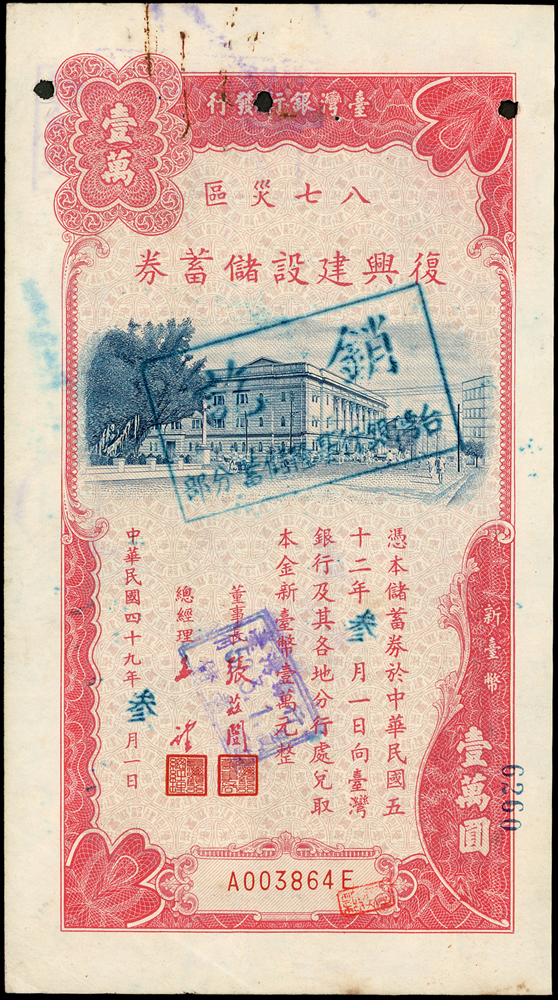 臺灣銀行發行
壹萬
八七災區
復興建設儲蓄券
銷
部分蓄儲
憑本儲蓄券於中華民國五
十二年叁月一日向臺灣
銀行及其各地分行處兌取
本金新臺幣壹萬元整
董事長 張茲闓
總經理 王
中華民國四十九年叁月一日
新臺幣
壹萬圓
6260
A003864E